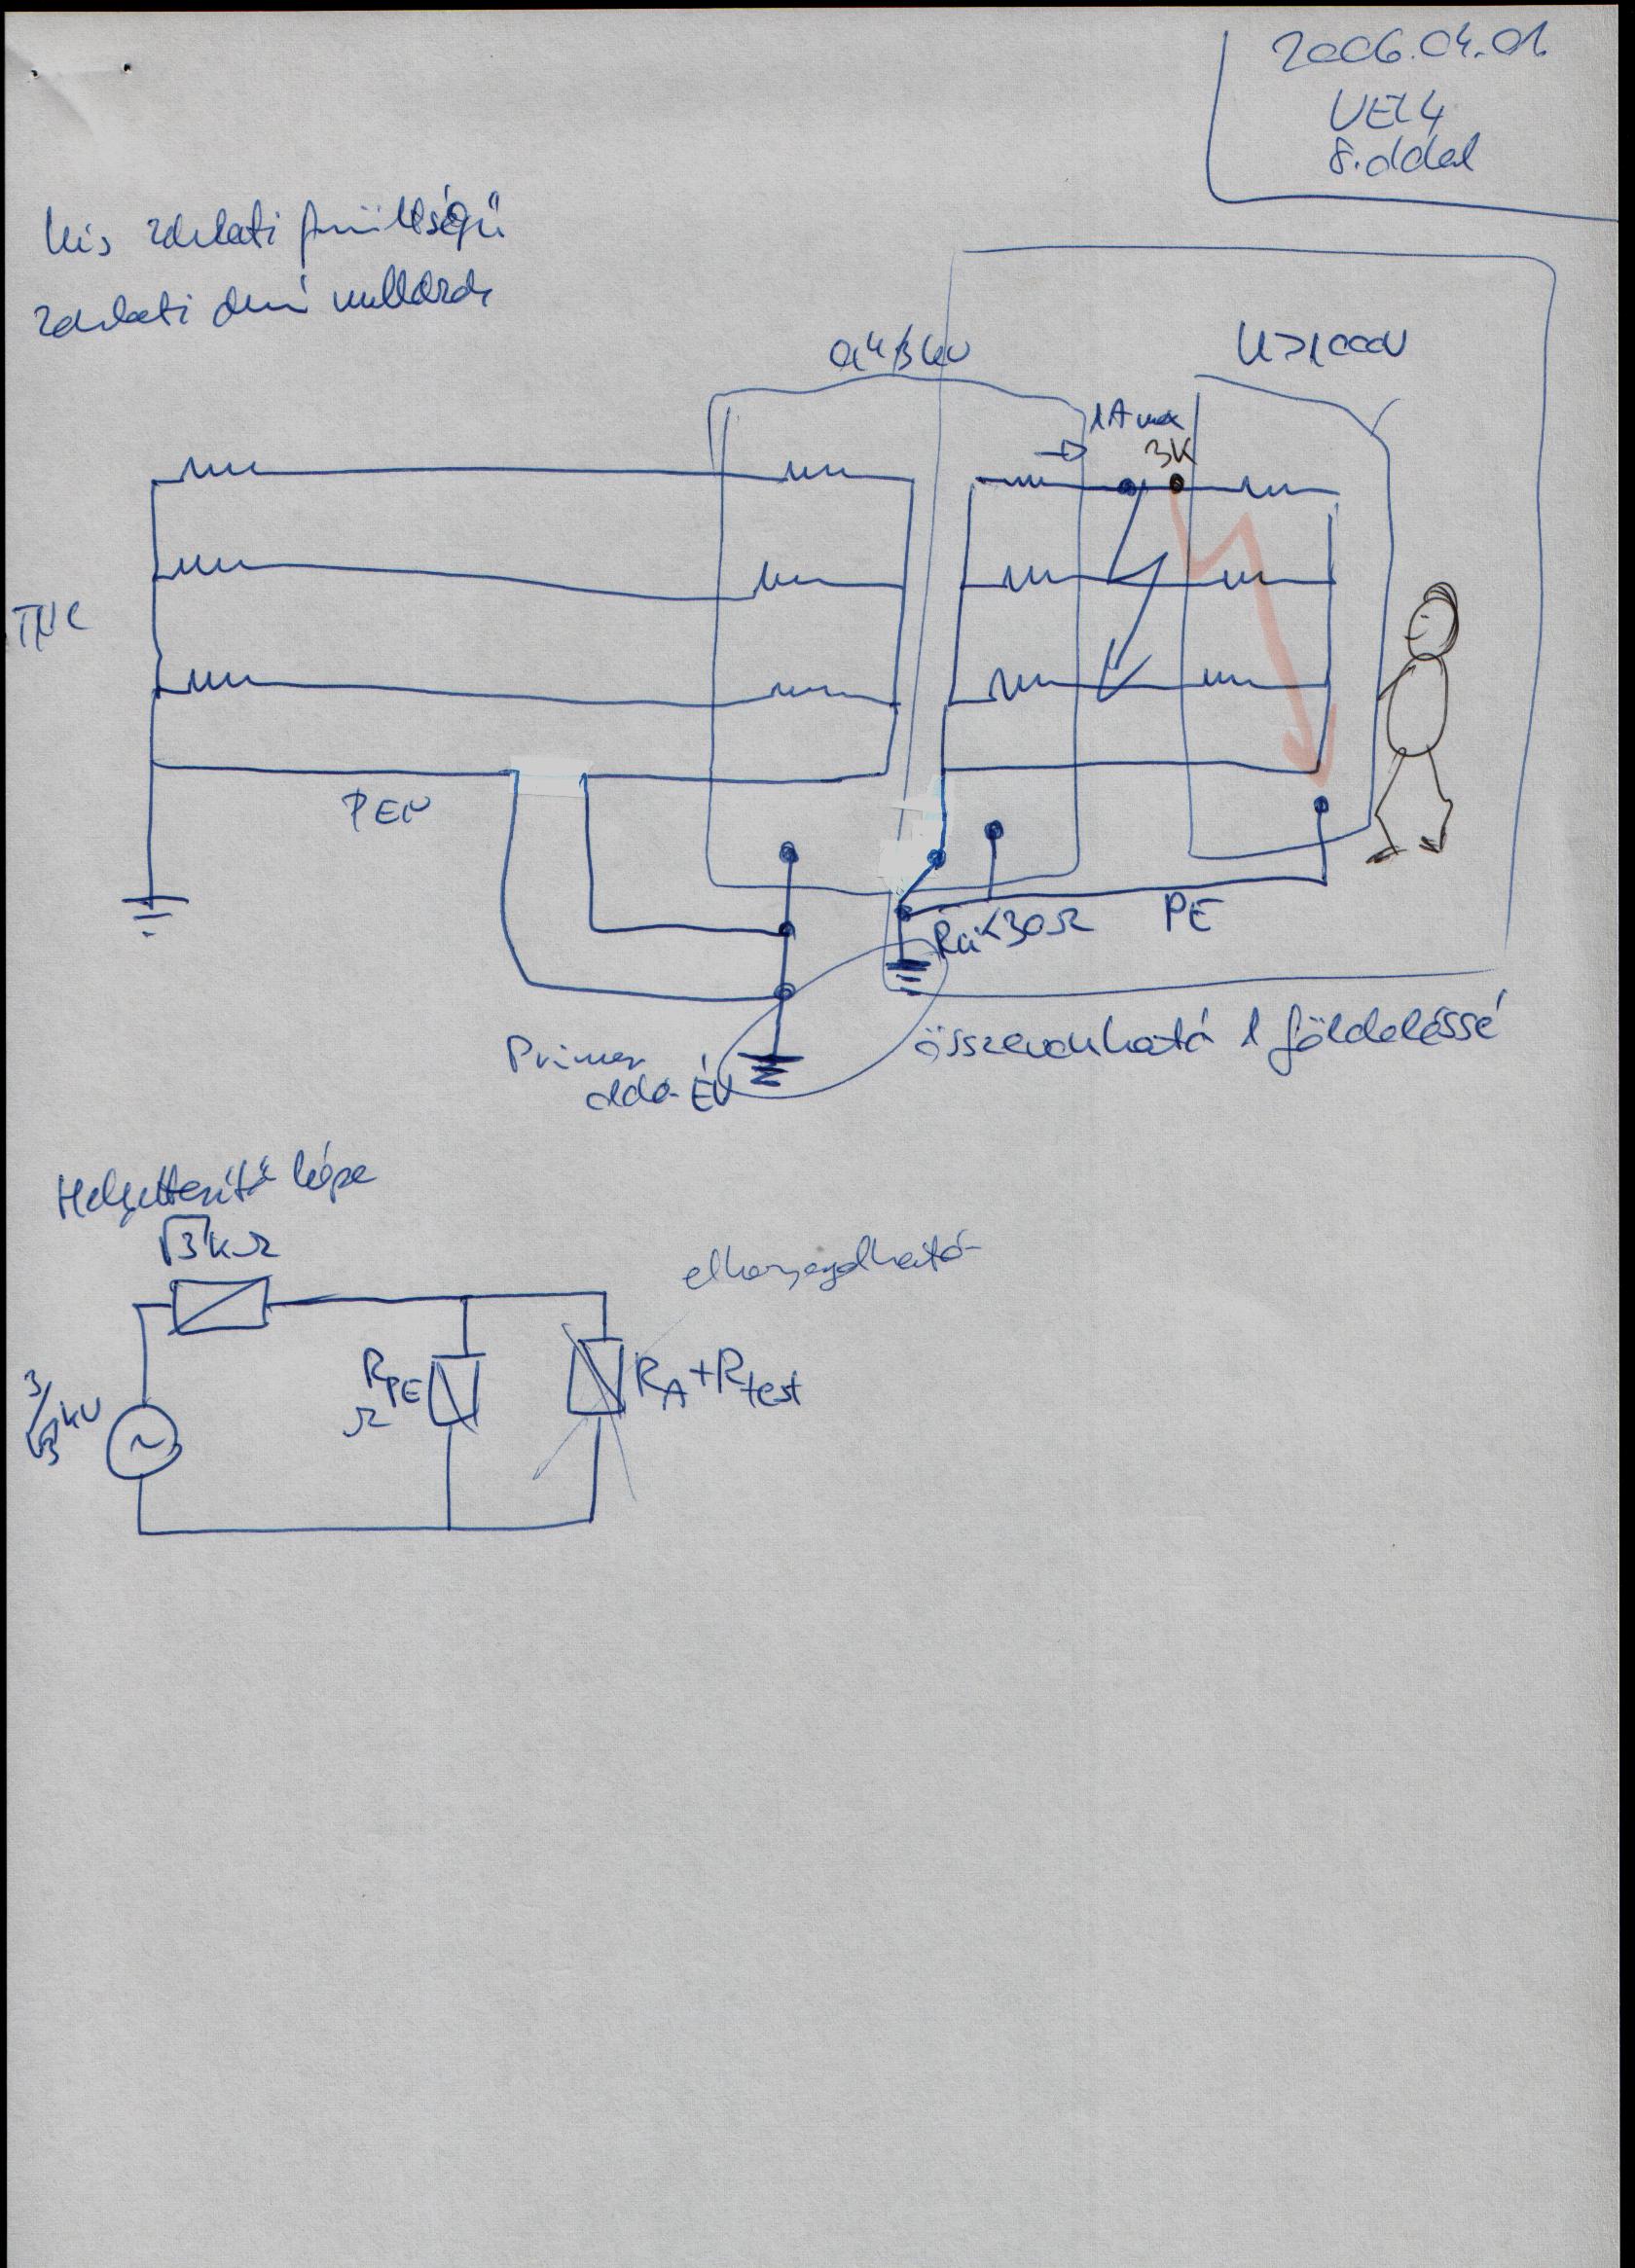 2006.04.01
VET4
8.oldal
kis zárlati feszültségű
zárlati áramú
0,4/3 kV
U>1000V
1A max
3K
TNC
PEN
<30Ω
PE
Primer
oldal ÉV
összevonható 1 földeléssé
Helyettesítő képe
√3kΩ
elhanyagolható
3/√3 kV
RPE
Ω
RA+Rtest